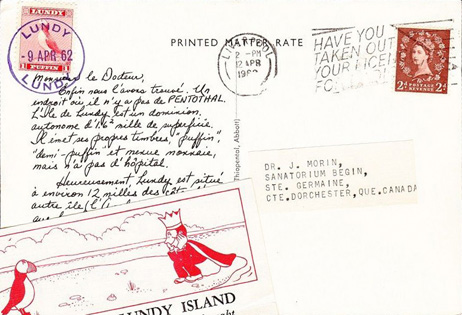 LUNDY
-9 APR 62
LUNDY
LUNDY
1
PUFFIN
PRINTED MATTER RATE
2 - PM
12 APR
HAVE YOU
TAKEN OUT
YOUR LICENCE
FOR
2D POSTAGE REVENUE 2D
Monsieur le Docteur,
Enfin nous l'avons trouvé. Un
endroit où il n'y a pas de PENTOTHAL.
L'île de Lundy est un dominion
autonome d'1.6² mille de superficie.
Il émet ses propres timbres, "puffin",
"demi-puffin et menue monnaie,
mais n'a pas d'hôpital.
Heureusement, Lundy est situé
à environ 12 milles des
autre île
Thiopental, Abbott)
DR. J. MORIN,
SANATORIUM BEGIN,
STE. GERMAINE,
CTE.DORCHESTER,QUE.CANADA
LUNDY ISLAND